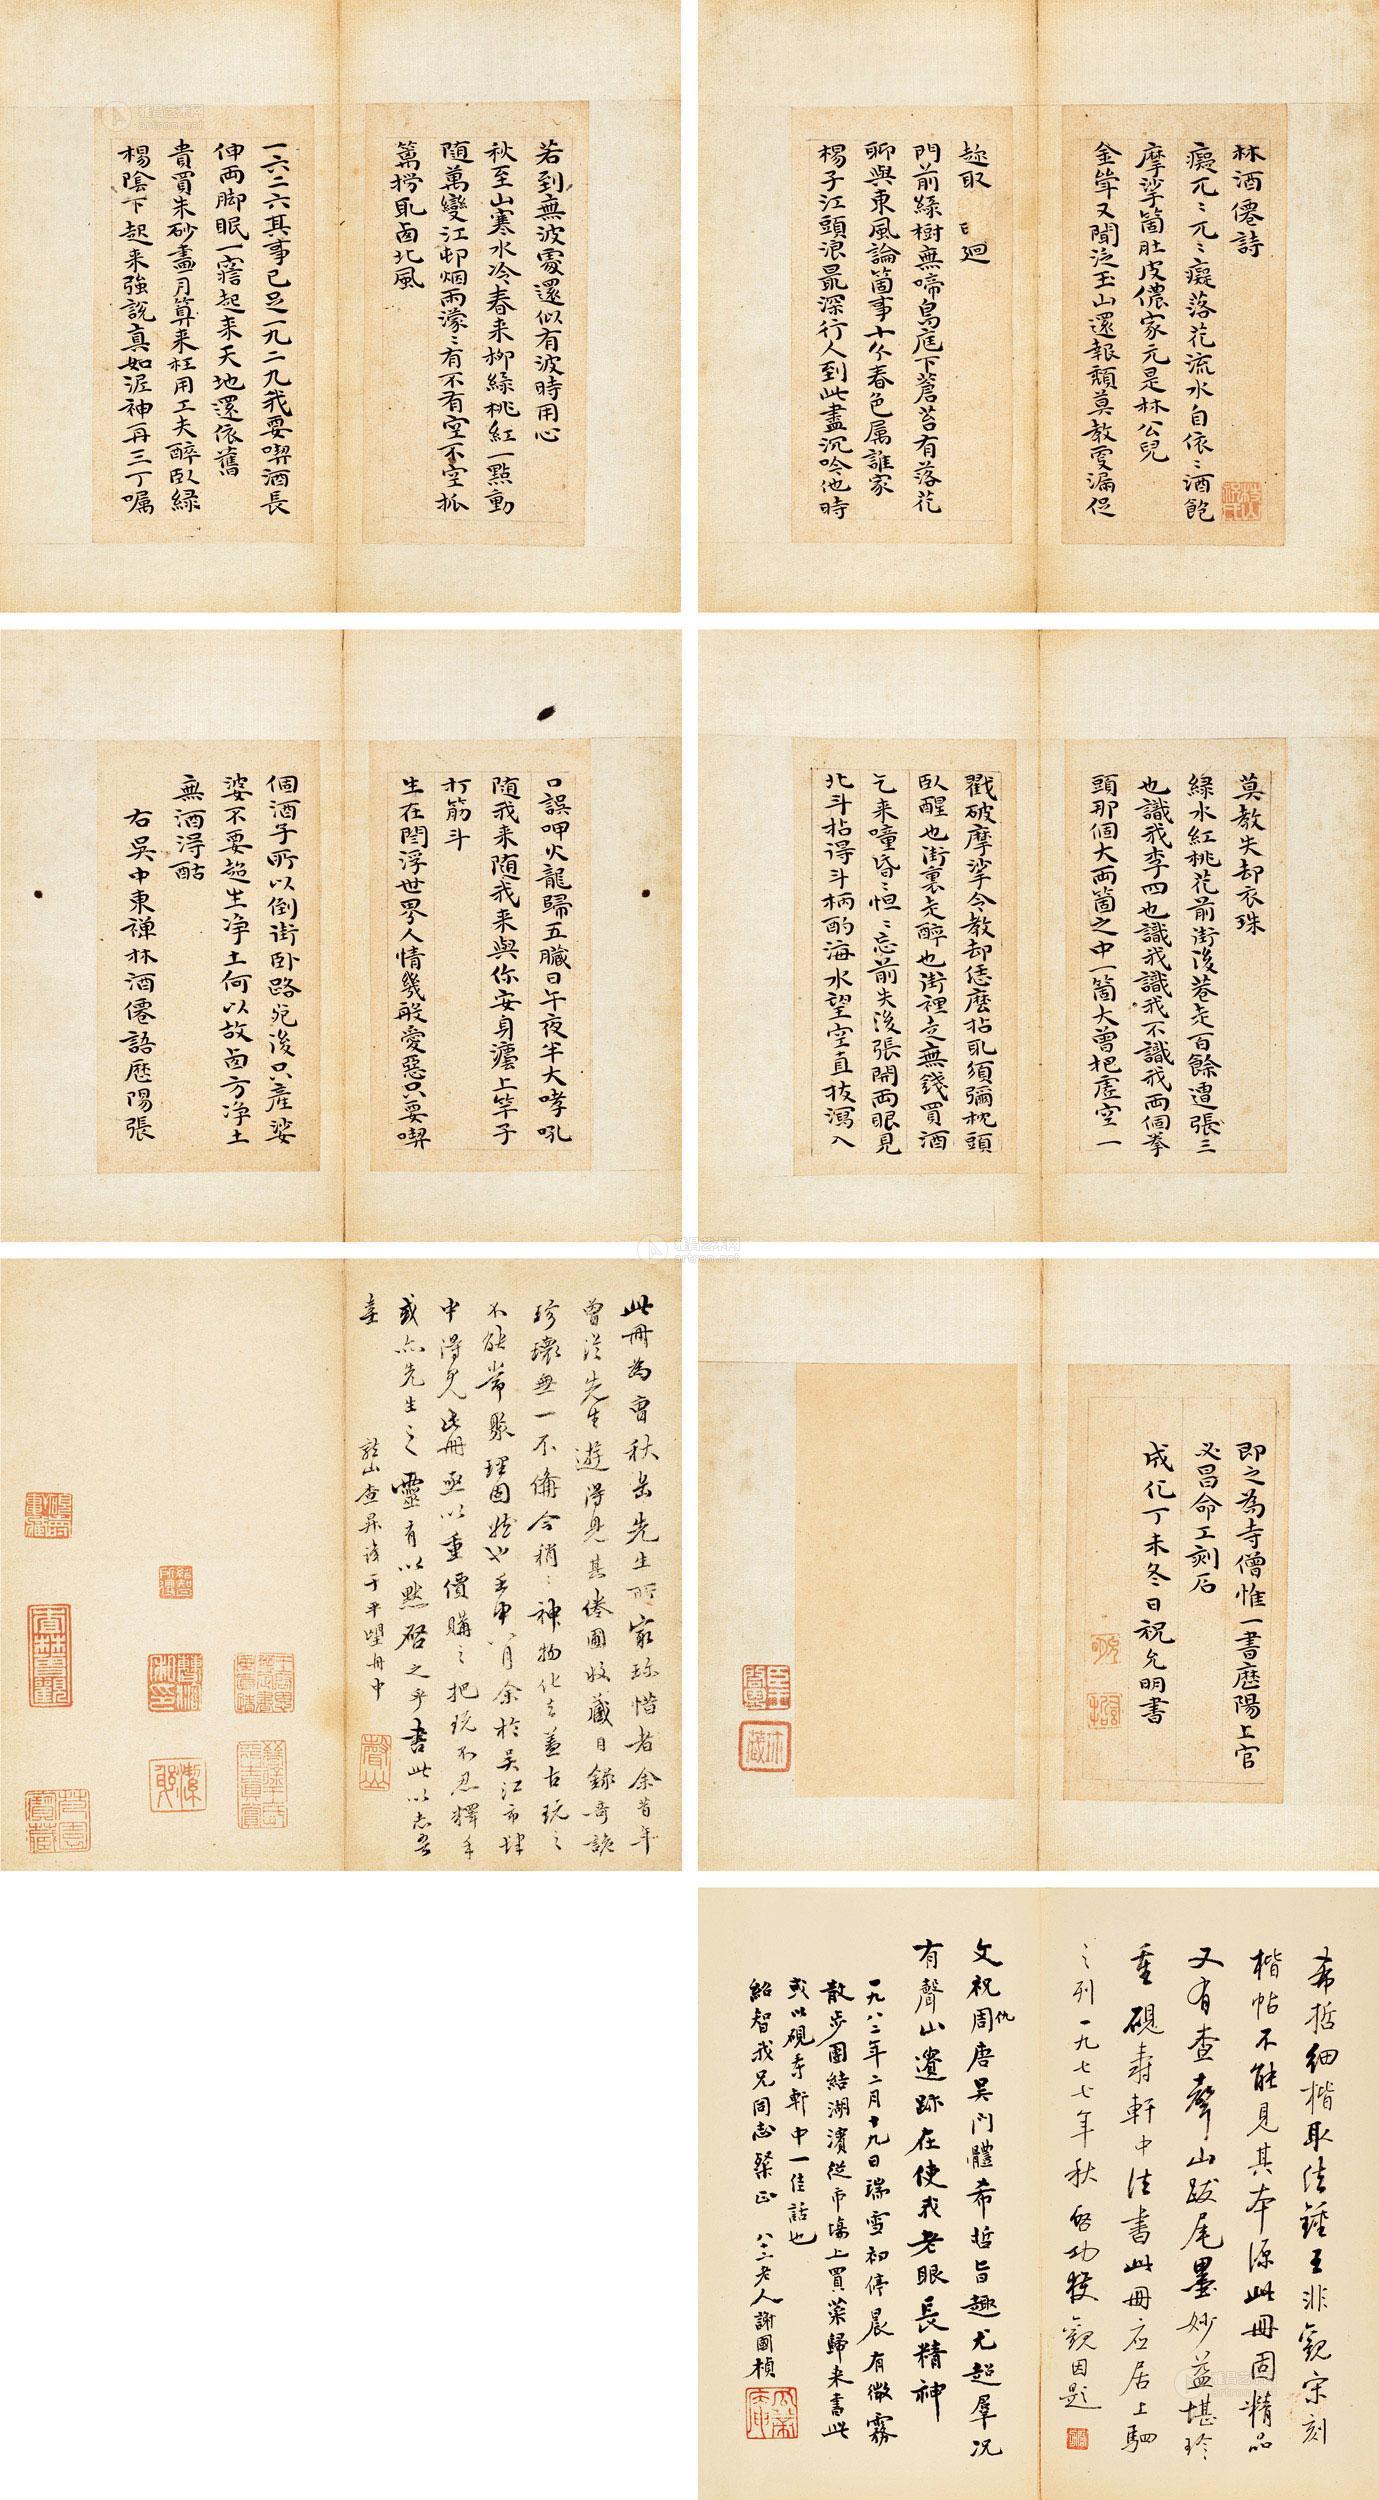 林酒僊詩
癡兀〻兀〻癡落花流水自依〻酒飽
摩挲箇肚皮儂家元是林公兒
金斚又聞泛玉山還報頹莫教更漏促
趁取 已廻
門前綠樹無啼鳥庭下蒼苔有落花
聊與東風論箇事十分春色属誰家
楊子江頭浪最深行人到此盡沉吟他時
若到無波處還似有波時用心
秋至山寒水冷春来柳綠桃紅一點動
隨萬變江邨烟雨濛〻有不有空不空抓
篱撈取卤北風
一六二六其事已足一九二九我要喫酒長
伸两脚眠一寤起来天地還依舊
貴買朱砂畫月算来枉用工夫醉臥緑
楊陰下起来強說真如泥神再三丁嘱
莫教失却衣珠
緑水紅桃花前街後巷走百餘遭張三
也識我李四也識我識我不識我两個拳
頭那個大两箇之中一箇大曾把虛空一
戳破摩挲令教却恁麽拈取須彌枕頭
臥醒也街裏走醉也街裡立無錢買酒
乞来噇昏〻恒〻忘前失後張開两眼見
北斗拈得斗柄酌海水望空直拔瀉入
口誤呷火龍歸五臟日午夜半大哮吼
随我来随我来與你安身灋上竿子
打筋斗
生在閻浮世界人情幾般愛惡只要喫
個酒子所以倒街卧路死後只產娑
婆不要超生净土何以故卤方净土
無酒淂酤
右吳中東禅林酒僊語歷陽張
即之為寺僧惟一書歷陽上官
必昌命工刻石
成化丁未冬日祝允明書
此冊為曹秋岳先生所家珍惜者余昔年
曾從先生遊得見其倦圃收藏目錄奇詭
珍瓌無一不備今稍〻神物化去蓋古玩之
不能常聚理固然也壬申八月余於吴江市肆
中得見此冊亟以重價購之把玩不忍釋手
或亦先生之靈有以默啓之乎書此以志吾
喜
龍山查昇識于平望舟中
希哲細楷取法鍾王非觀宋刻
楷帖不能見其本源此冊固精品
又有查聲山跋尾墨妙益堪珍
重硯壽軒中法書此冊应居上駟
之列一九七七年秋啓功獲觀因題
文祝周仇唐吴门體希哲旨趣尤超羣况
有聲山遺跡在使我老眼長精神
一九八二年二月十九日瑞雪初停晨有微霧
散步團結湖濱從市場上買菜歸来書此
或以硯壽軒中一佳話也
紹智我兄同志粲正 八十二老人謝國楨